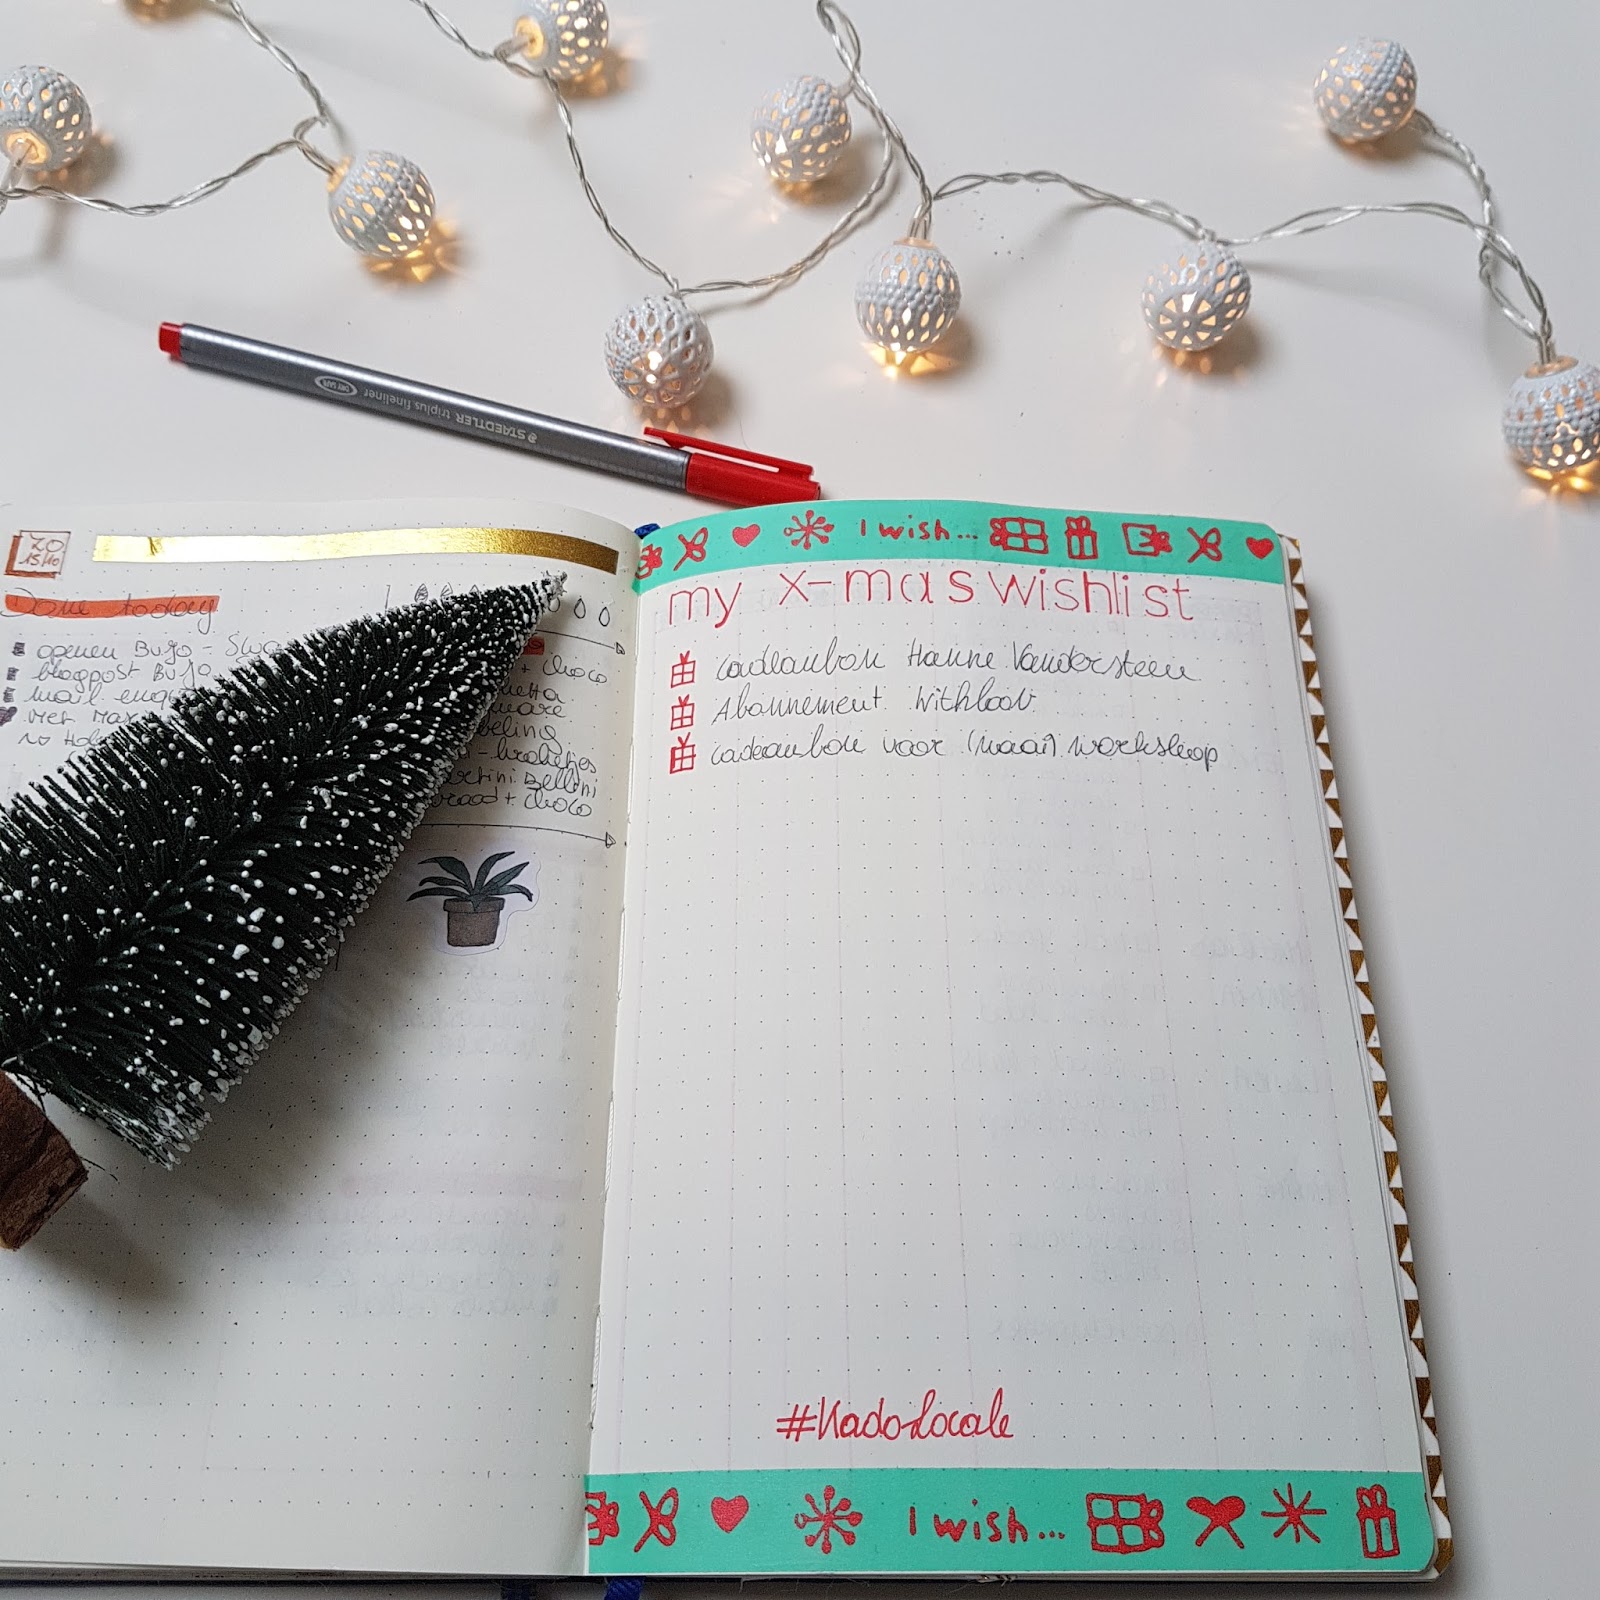 STAEDTLER triplus fineliner
DRY SAFE
ZO
15/10
Done today
openen BuJo -
blogpost BuJo
mail
+ choco
Bellini
+ choco
I wish...
my x-mas wishlist
cadeaubon Hanne Vandersteen
Abonnement Withloov
cadeaubon voor (naai) workshop
#KadoLocale
I wish...